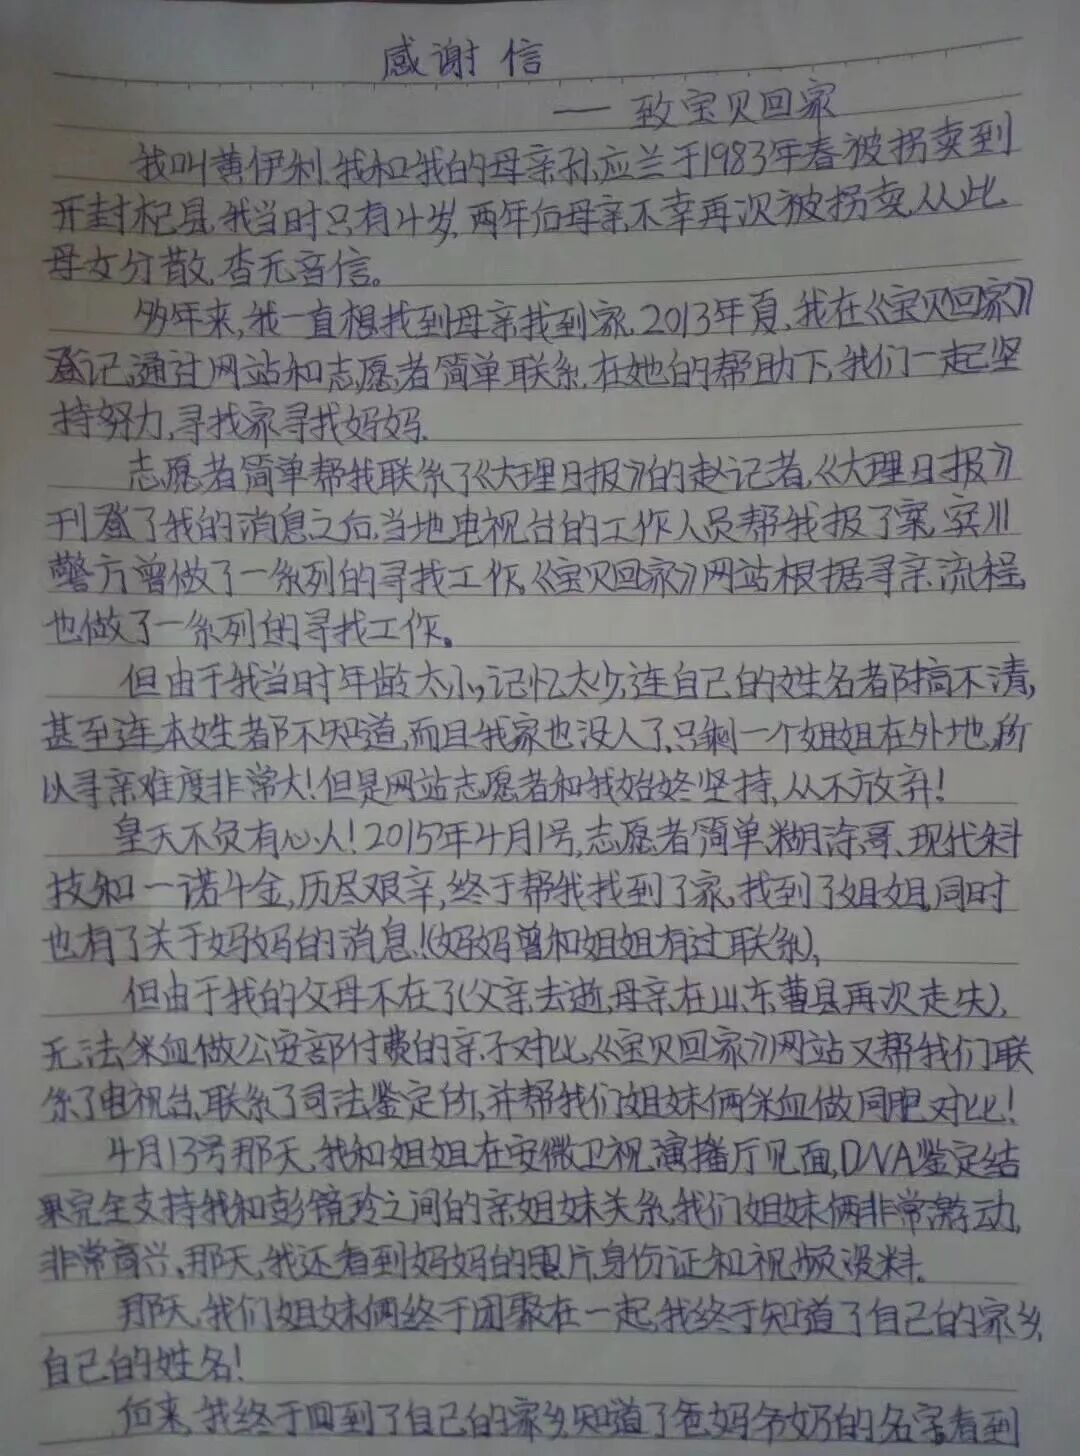 感谢信
——致宝贝回家
我叫黄伊利,我和我的母亲孙应兰于1983年春被拐卖到
开封杞县,我当时只有4岁,两年后母亲不幸再次被拐卖,从此
母女分散,杳无音信。
多年来,我一直想找到母亲找到家,2013年夏,我在《宝贝回家》
登记,通过网站和志愿者简单联系,在她的帮助下,我们一起坚
持努力,寻找家寻找妈妈.
志愿者简单帮我联系了《大理日报》的赵记者,《大理日报》
刊登了我的消息之后,当地电视台的工作人员帮我报了案,宾川
警方曾做了一系列的寻找工作,《宝贝回家》网站根据寻亲流程,
也做了一系列的寻找工作。
但由于我当时年龄太小,记忆太少,连自己的姓名都搞不清,
甚至连本姓都不知道,而且我家也没人了,只剩一个姐姐在外地,所
以寻亲难度非常大!但是网站志愿者和我始终坚持,从不放弃!
皇天不负有心人!2015年4月1号,志愿者简单、糊涂哥、现代科
技和一诺千金,历尽艰辛,终于帮我找到了家,找到了姐姐,同时
也有了关于妈妈的消息!(妈妈曾和姐姐有过联系),
但由于我的父母不在了(父亲去逝,母亲在山东曹县再次走失),
无法采血做公安部付费的亲子对比,《宝贝回家》网站又帮我们联
系了电视台,联系了司法鉴定所,并帮我们姐妹俩采血做同胞对比!
4月13号那天,我和姐姐在安徽卫视演播厅见面,DNA鉴定结
果完全支持我和彭镜玲之间的亲姐妹关系,我们姐妹俩非常激动,
非常高兴,那天,我还看到妈妈的照片,身份证和视频资料.
那天,我们姐妹俩终于团聚在一起,我终于知道了自己的家乡,
自己的姓名!
后来,我终于回到了自己的家乡,知道了爸妈爷奶的名字,看到